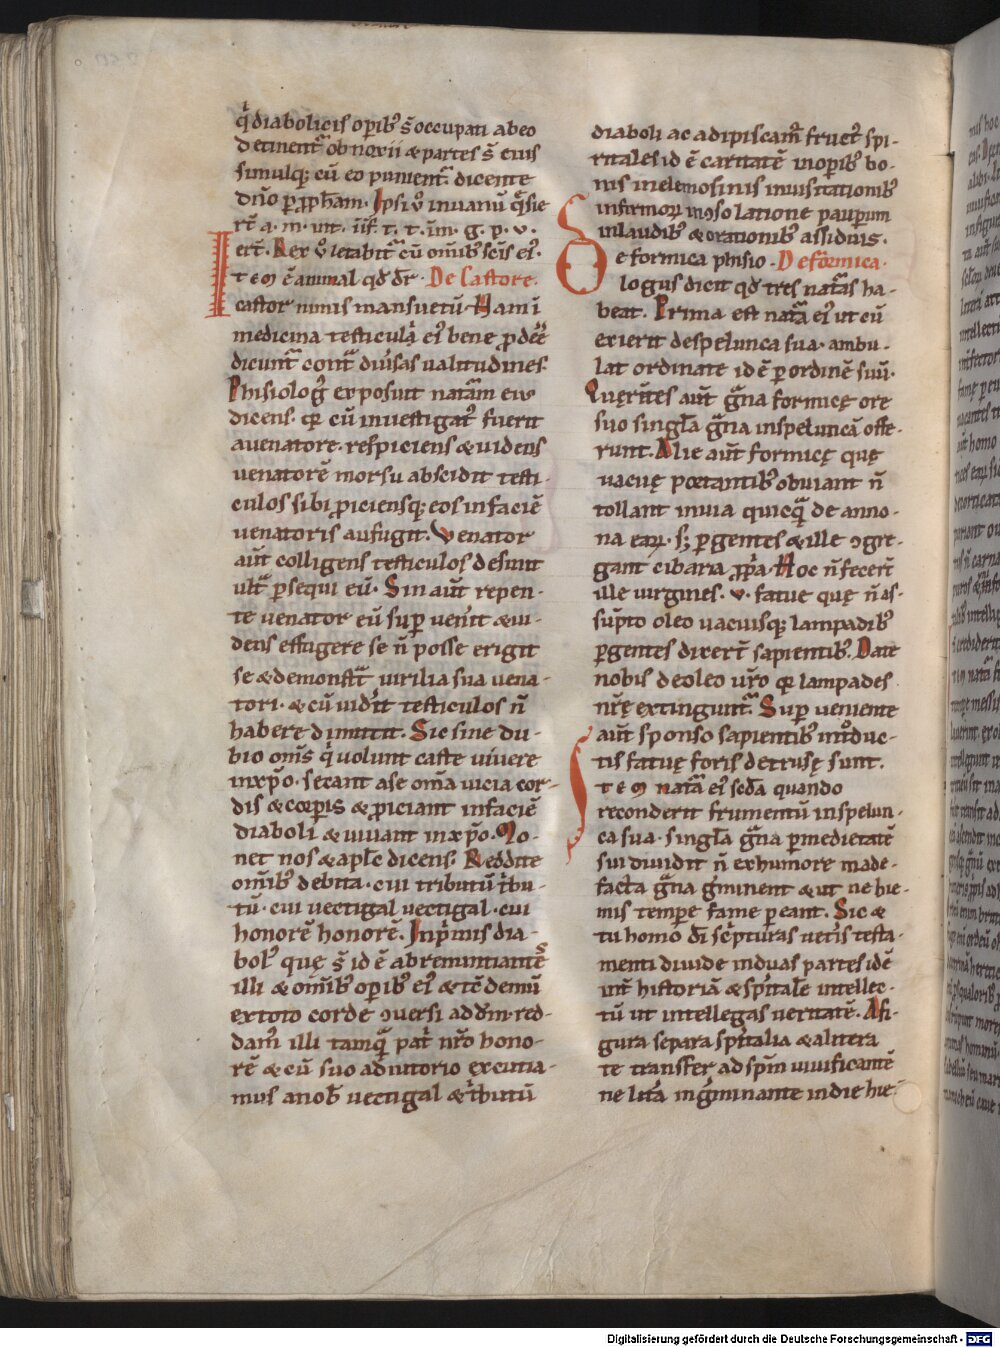 q̇ diabolicis opib' s̄ occupati abeo
detinent᷑ obnoxii & partes s̄ eius
simulq; cū eo punient᷑ dicente
dn̄o p ꝓph̄am. Ipsi v̊ in vanū q̄sie
rt̄ a. m. int. iif. t. t. īm. g. p. v.
iert̄. Rex v̊ letabit᷑ cū om̄ib' sc̄is ei'.
Item ē animal qd̄ dr̄. De Castore.
castor nimis mansuetū. Nam ī
medicina testiculi q̇ ei' bene ꝓdeē
dicunt᷑ cont᷑ diu'sas ualitudines.
Phisiolog' exposuit natām eius
dicens. qꝫ cū inuestigat' fuerit
auenatore. respiciens & uidens
uenatorē morsu abscidit testi-
culos sibi ꝓiciensq; eos in faciē
uenatoris aufugit. Venator
aūt colligens testiculos desinit
ult᷑ psequi eū. Sin aūt repen-
te uenator eū sup ven'it & ui-
dens effugere se n̄ posse erigit
se & demonst᷑t uirilia sua uena-
tori. & cū uid'it testiculos n̄
habere dimittit. Sic sine du-
bio om̄s q̇ uolunt caste uiuere
in xp̄o. secant a se om̄a uicia cor-
dis & corpis & ꝓiciant in faciē
diaboli & uiuant in xp̄o. Mo-
net nos & apl̄c dicens. Reddite
om̄ib' debita. cui tributū t'bu-
tū. cui uectigal uectigal. cui
honorē honorē. In p'mis dia-
bol' quę s̄ id ē abrenuntiantēs
illi & om̄ib' opib' ei' & tc̄ demū
ex toto corde ꝯuersi ad dn̄m. red-
dam' illi tamq̄ pat' nr̄o hono-
rē & cū suo adiutorio excutia-
mus a nob' uectigal & t'butū
diaboli ac adipiscam' fruct' spi-
ritales id ē caritatē in opib' bo-
nis in elemosinis in uisitationib'
infirmoꝝ in ꝯsolatione paupum
in laudib' & orationib' assiduis.
De formica phisio-. De formica.
logus dicit qd̄ tres natās ha-
beat. Prima est natā ei' ut cū
exierit de spelunca sua. ambu-
lat ordinate id ē p ordinē suū.
Quęrn̄tes aūt g̃na formicę ore
suo singl̄a g̃na in speluncā offe-
runt. Alie aūt formicę quę
uacuę portantib' obuiant n̄
tollant in uia quicq̄ de anno-
na eaꝝ. s; pgentes & ille ꝯgre-
gant cibaria ꝓp̄a. Hoc n̄ fecer̄t
ille uirgines. v. fatue quę n̄ as-
sūpto oleo uacuisq; lampadib'
pgentes dixer̄t sapientib'. Date
nobis de oleo ur̄o qꝫ lampades
nr̄ę extingunt᷑. Sup ueniente
aūt sponso sapientib' int̊duc-
tis fatuę foris detrusę sunt.
Item natā ei' scd̄a quando
reconderit frumentū in spelun-
ca sua. singl̄a g̃na p medietatē
sui diuidit n̄ ex humore made-
facta g̃na g'minent & ut ne hie-
mis tempe fame peant. Sic &
tu homo dī sc'pturas uetis testa-
menti diuide in duas partes id ē
int̄ historiā & spitalē intellec-
tū ut intellegas ueritatē. A fi-
gura separa sp'italia & alitera
te transfer ad sp̄m uiuificantē
ne lit̄a in g'minante in die hie-
Digitalisierung gefördert durch die Deutsche Forschungsgemeinschaft - DFG